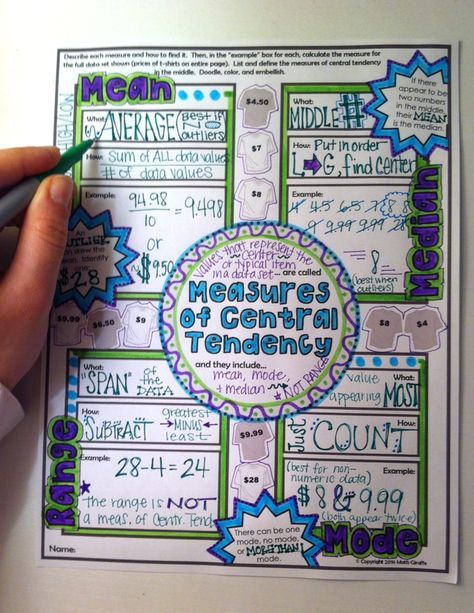 Describe each measure and how to find it. Then, in the "example" box for each, calculate the measure for
the full data set shown (prices of t-shirts on entire page). List and define the measures of central tendency
in the middle. Doodle, color, and embellish.
Mean
What:
AVERAGE (best if
no
outliers)
How: Sum of ALL data values
# of data values
Example:
94.98
10
= 9.498
or
≈ $9.50
AN
OUTLIER
$28
$4.50
$7
$8
What:
MIDDLE #
How: Put in order
L → G, find center
Example:
4 4.5 6.5 7 8 8
9 9.99 9.99 28
8
(best when
outliers)
Median
If there
appear to be
two numbers
in the middle,
their MEAN
is the median.
values that represent the
center
or typical item
in a data set... are called
Measures
of Central
Tendency
and they include...
mean, mode,
+ median
★ NOT RANGE
$9.99
$6.50
$9
$8
$4
Range
What:
"SPAN" of the DATA
How:
greatest
SUBTRACT → MINUS
least
Example:
28-4 = 24
★ the range is NOT
a meas. of Centr. Tend.
$9.99
$28
What: value
appearing MOST
How:
Just COUNT
Example: (best for non-
numeric data)
$8 & 9.99
(both appear twice)
Mode
There can be one
mode, no mode,
or MORE THAN 1
mode.
Name:
© Copyright 2016 Math Giraffe